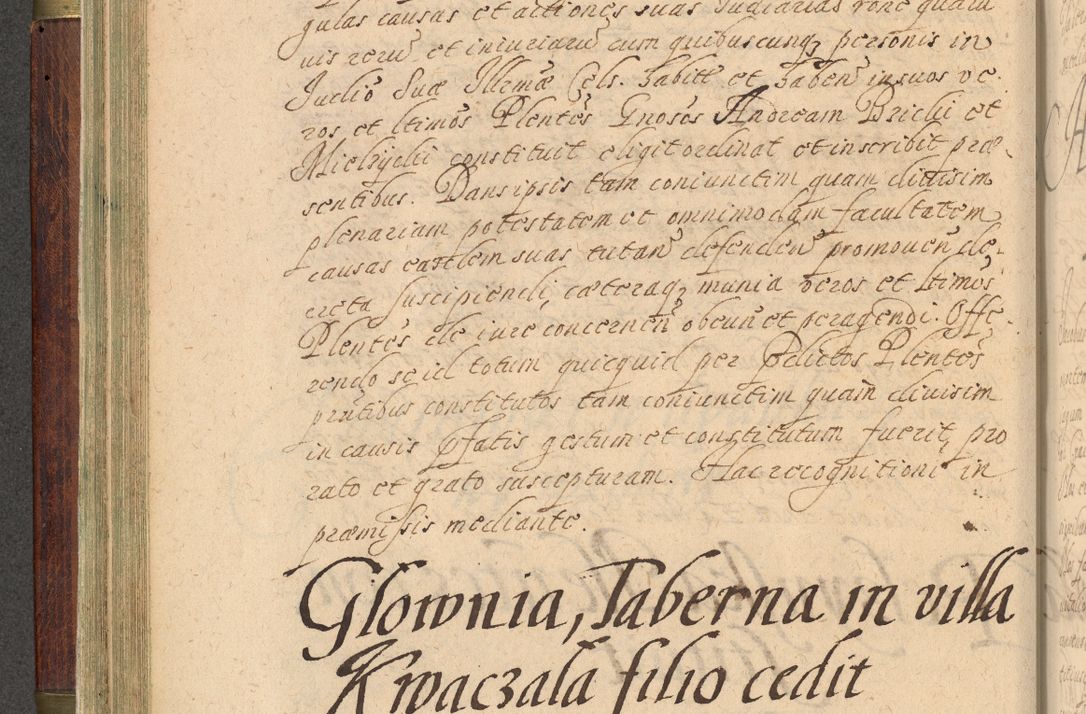 gulas causas et actiones suas Iudiciarias rõne quaru
uis rerũ et iniuriarũ cum quibuscunq3 personis in
Iudiõ Suæ Illemæ Cels. habitt et habeñ in suos ve
ros et ltimõs Plentẽs Gnosõs Andream Bricki et
Mielzycki constituit eligit ordinat et inscribit præ
sentibus. Dans ipsis tam coniunctim quam diuisim
plenariam potestatem et omnimodam facultatem
causas eastdem suas tutañ defendeñ promoueñ de
creta suscipiendi, cæteraq3 munia veros et ltimõs
Plentẽs de iure concerneñ obeuñ et peragendi. Offe
rendo se id totum quicquid per Pdictos Plentẽs
prñtibus constitutos tam coniunctim quam diuisim
in causis Pfatis gestum et constitutum fuerit, pro
rato et grato suscepturam. Hac recognitioni in
præmissis mediante.
Glownia, Taberna in villa
Kwaczala filio cedit